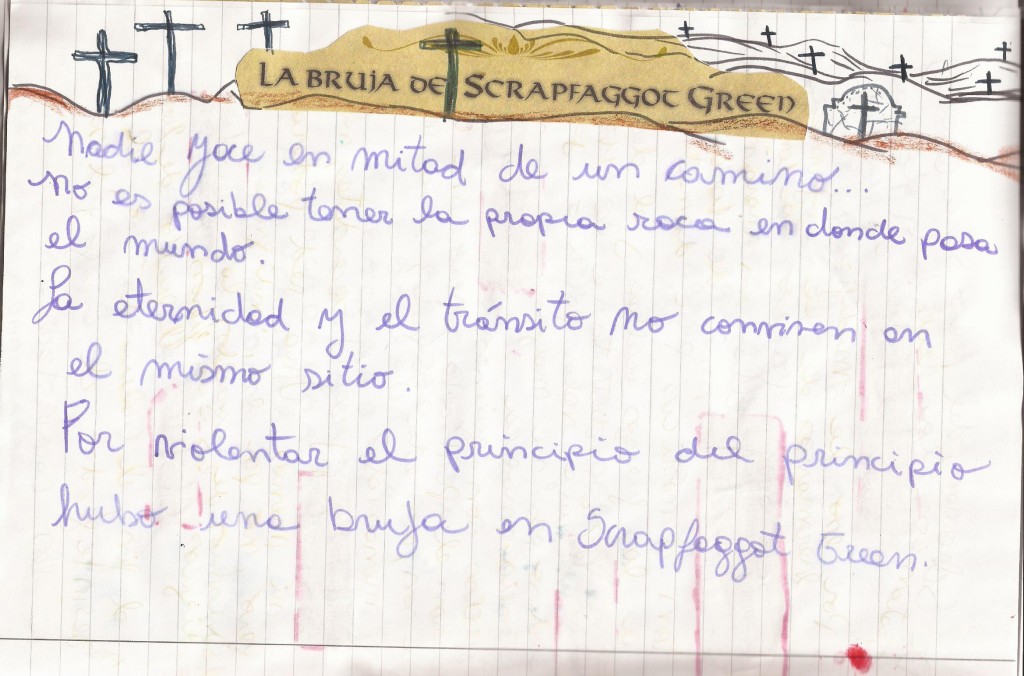 La bruja de Scrapfaggot Green
Nadie yace en mitad de un camino...
No es posible tener la propia roca en donde pasa
el mundo.
La eternidad y el tránsito no conviven en
el mismo sitio.
Por violentar el principio del principio
hubo una bruja en Scrapfaggot Green.